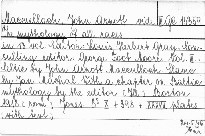 Macculloch John Arnott vid.
The mythology of all races
in 13 vol. Editor: Louis Herbert Gray. Con-
sulting editor: George Foot Moore. Vol. III.
Celtic by John Arnott Macculloch. Slavic
by Jan Máchal. With a chapter on Baltic
mythology by the editor. Boston
X + 398 + plates
with text